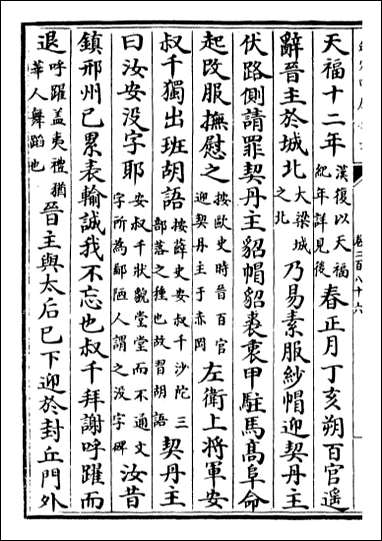 卷二百八十六
天福十二年漢復以天福紀年詳見後春正月丁亥朔百官遥
辭晉主於城北大梁城之北乃易素服紗帽迎契丹主
伏路側請罪契丹主貂帽貂裘衷甲駐馬髙阜命
起改服撫慰之按歐史時晉百官迎契丹主于赤岡左衛上将軍安
叔千獨出班胡語按薛史安叔千沙陀三部落之種也故習胡語契丹主
曰汝安没字耶安叔千狀貌堂堂而不通文字所為鄙陋人謂之没字碑汝昔
鎮邢州已累表輸誠我不忘也叔千拜謝呼躍而
退呼躍盖夷禮猶華人舞蹈也晉主與太后已下迎於封丘門外